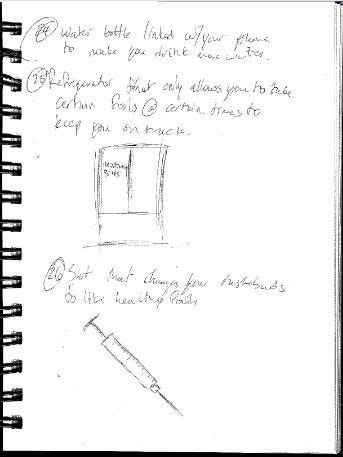 24 Water bottle linked w/your phone
to make you drink more water.
25 Refrigerator that only allows you to take
certain foods @ certain times to
keep you on track.
3:45
26 that changes your tastebuds
to like healthy foods